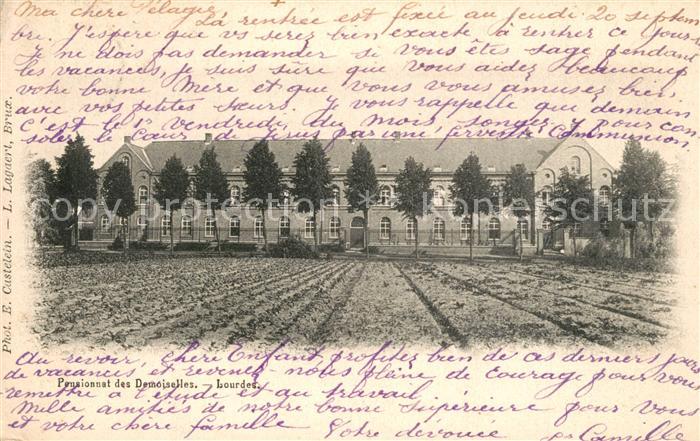 Ma chère Pélagie +
La rentrée est fixée au Jeudi 20 septem
bre. J'espère que vs serez bien exacte à rentrer ce jour-
Je ne dois pas demander si vous êtes sage pendant
les vacances, je suis sûre que vous aidez beaucoup
votre bonne Mère et que vous vous amusez bien
avec vos petites sœurs. Je vous rappelle que demain
C'est le 1r Vendredi du mois songez-y pour con
soler le Cœur de Jésus par une fervente Communion.
Copyright-protected Kopierschutz
Phot. E. Castelein. — L. Lagaert, Brux.
Au revoir, chère Enfant profitez bien de ces derniers jours
de vacances et revenez-nous pleine de courage pour vous
Pensionnat des Demoiselles. — Lourdes.
remettre à l'étude et au travail
Mille amitiés de notre bonne Supérieure pour vous
et votre chère famille Votre dévouée Sr Camille